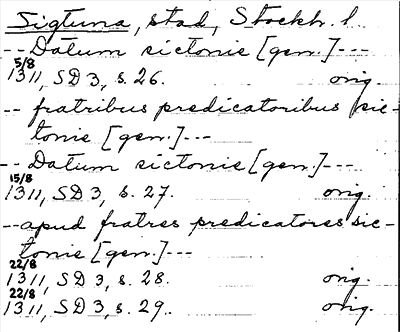 Sigtuna, stad, Stockh. l.
-- Datum sictonie [gen.] ---
5/8
1311, SD 3, s. 26. orig.
-- fratribus predicatoribus sic-
tonie [gen.] ---
-- Datum sictonie [gen.] ---
15/8
1311, SD 3, s. 27. orig.
-- apud fratres predicatores sic-
tonie [gen.] ---
22/8
1311, SD 3, s. 28. orig.
22/8
1311, SD 3, s. 29. orig.